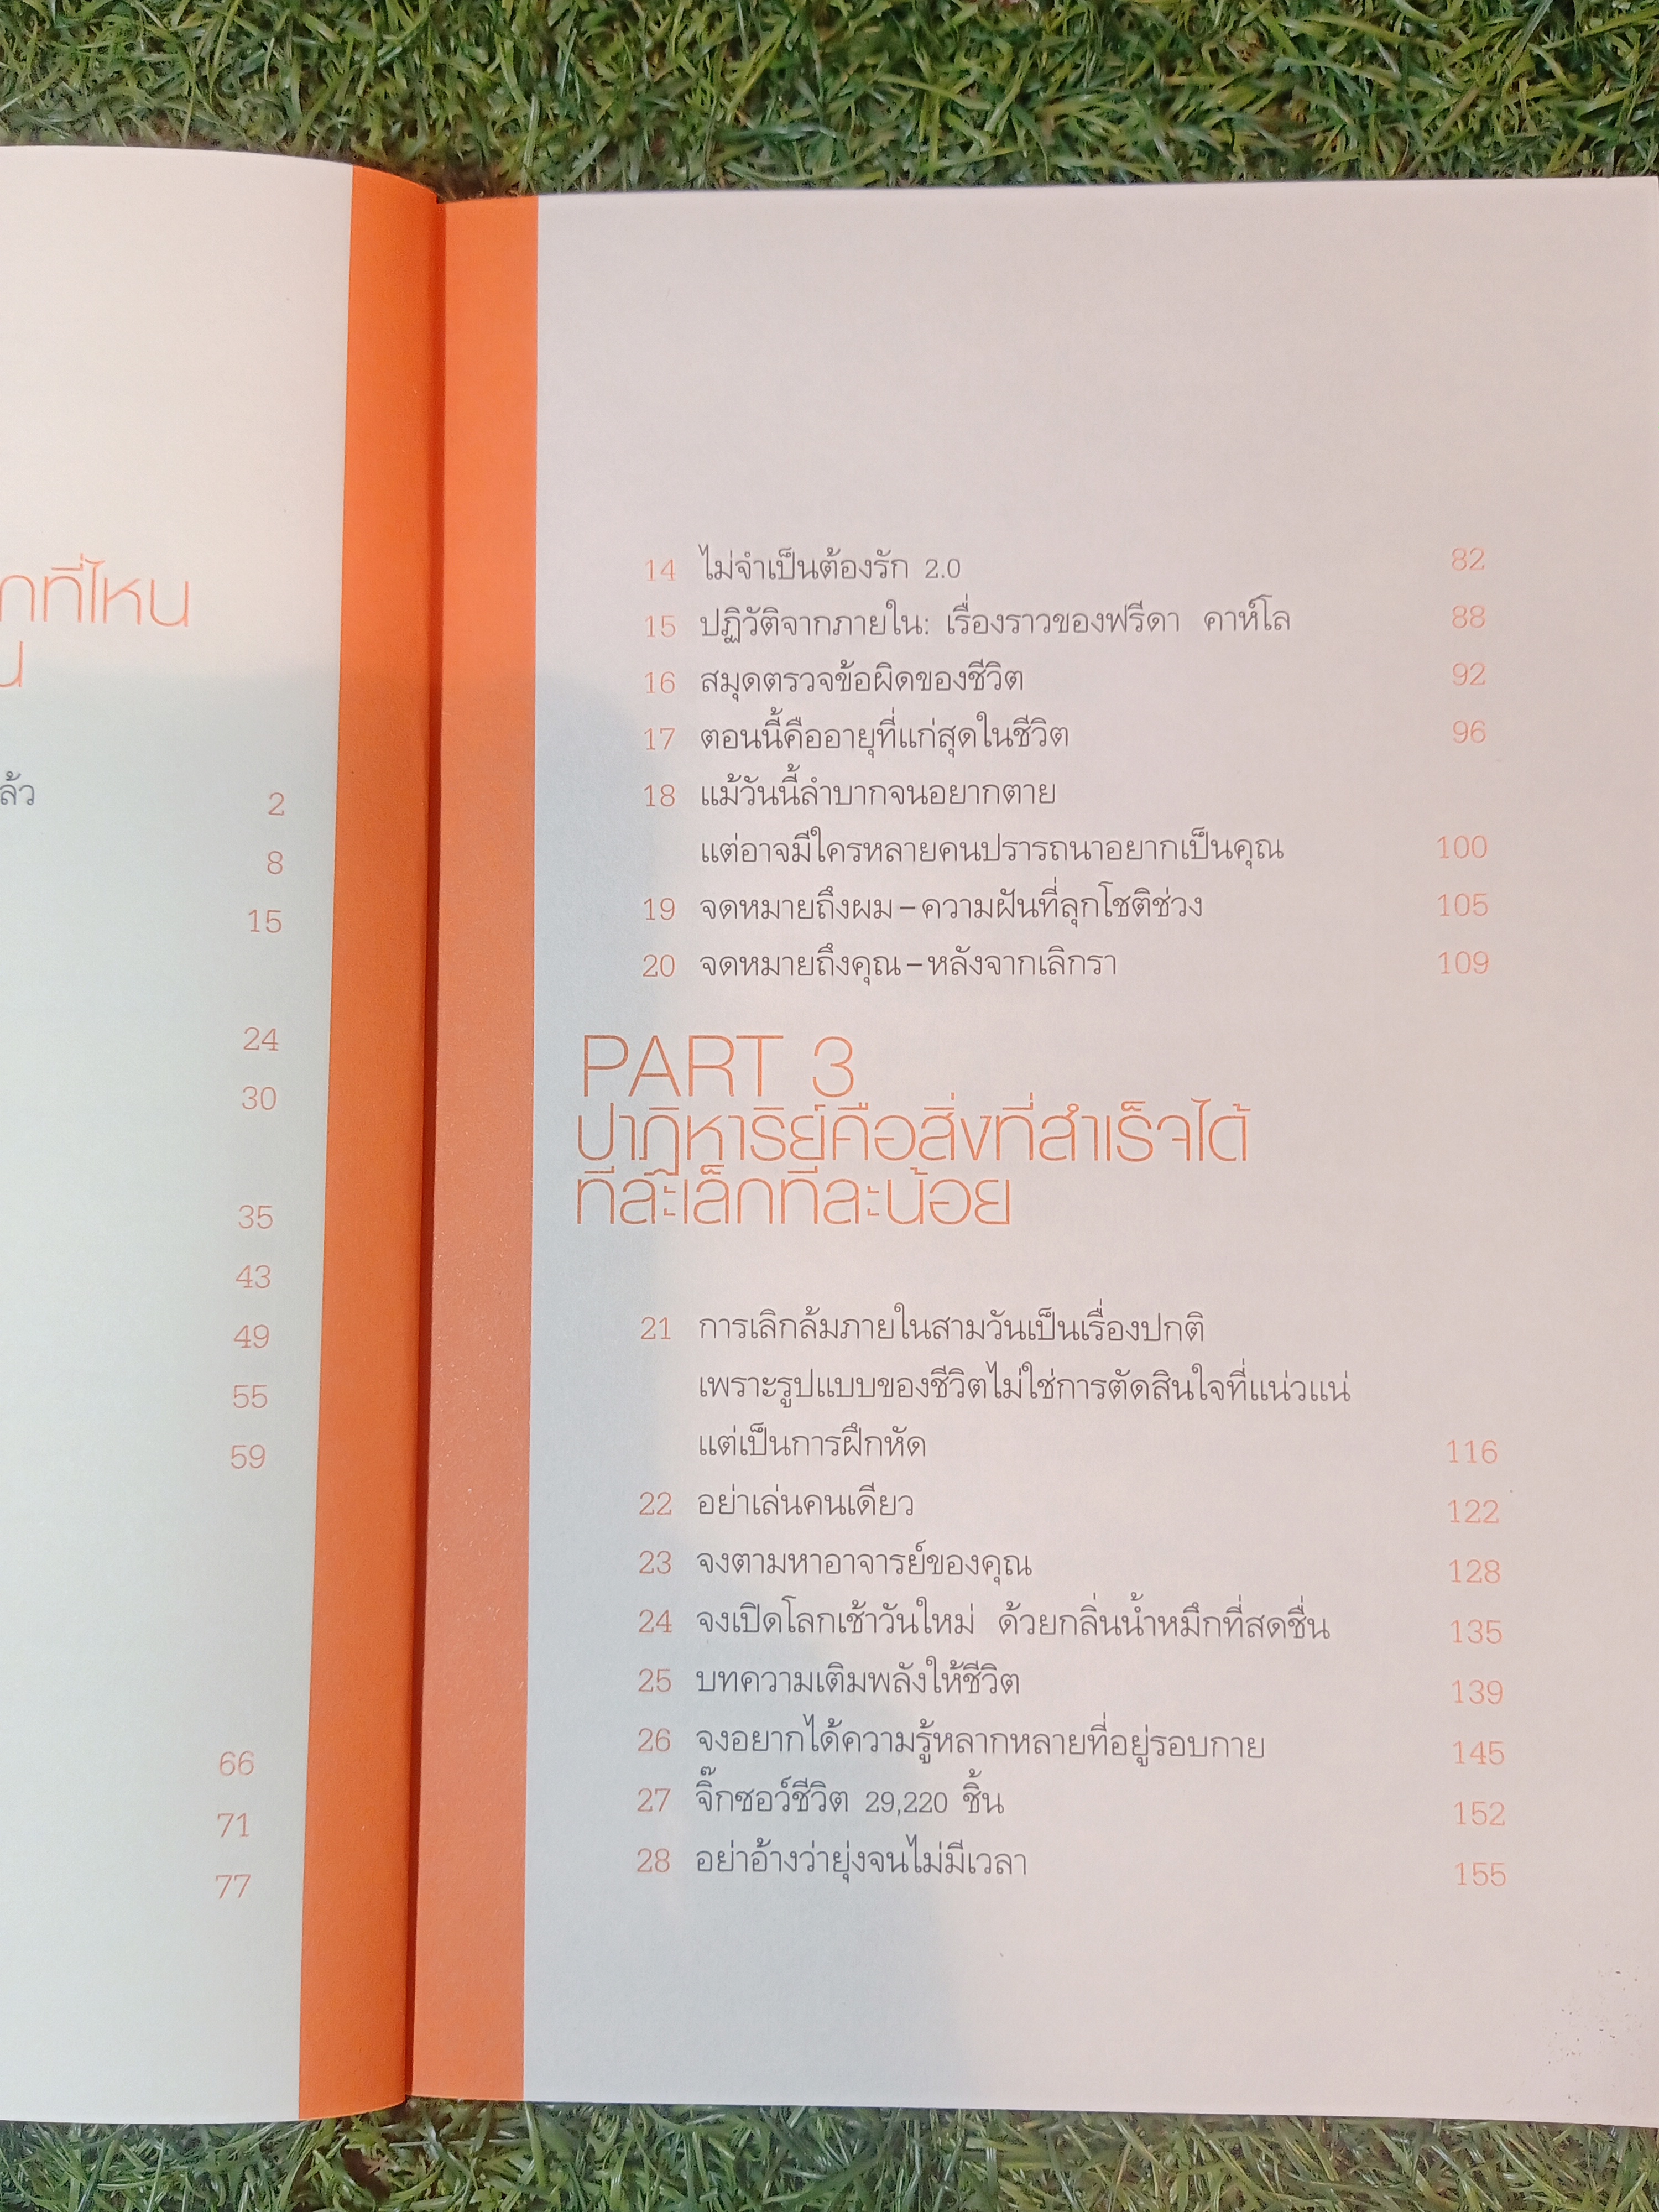 กที่ไหน
น
ล้ว
2
8
15
24
30
35
43
49
55
59
66
71
77
14 ไม่จำเป็นต้องรัก 2.0 82
15 ปฏิวัติจากภายใน: เรื่องราวของฟรีดา คาห์โล 88
16 สมุดตรวจข้อผิดของชีวิต 92
17 ตอนนี้คืออายุที่แก่สุดในชีวิต 96
18 แม้วันนี้ลำบากจนอยากตาย
แต่อาจมีใครหลายคนปรารถนาอยากเป็นคุณ 100
19 จดหมายถึงผม – ความฝันที่ลุกโชติช่วง 105
20 จดหมายถึงคุณ – หลังจากเลิกรา 109
PART 3
ปาฏิหาริย์คือสิ่งที่สำเร็จได้
ทีละเล็กทีละน้อย
21 การเลิกล้มภายในสามวันเป็นเรื่องปกติ
เพราะรูปแบบของชีวิตไม่ใช่การตัดสินใจที่แน่วแน่
แต่เป็นการฝึกหัด 116
22 อย่าเล่นคนเดียว 122
23 จงตามหาอาจารย์ของคุณ 128
24 จงเปิดโลกเช้าวันใหม่ ด้วยกลิ่นน้ำหมึกที่สดชื่น 135
25 บทความเติมพลังให้ชีวิต 139
26 จงอยากได้ความรู้หลากหลายที่อยู่รอบกาย 145
27 จิ๊กซอว์ชีวิต 29,220 ชิ้น 152
28 อย่าอ้างว่ายุ่งจนไม่มีเวลา 155